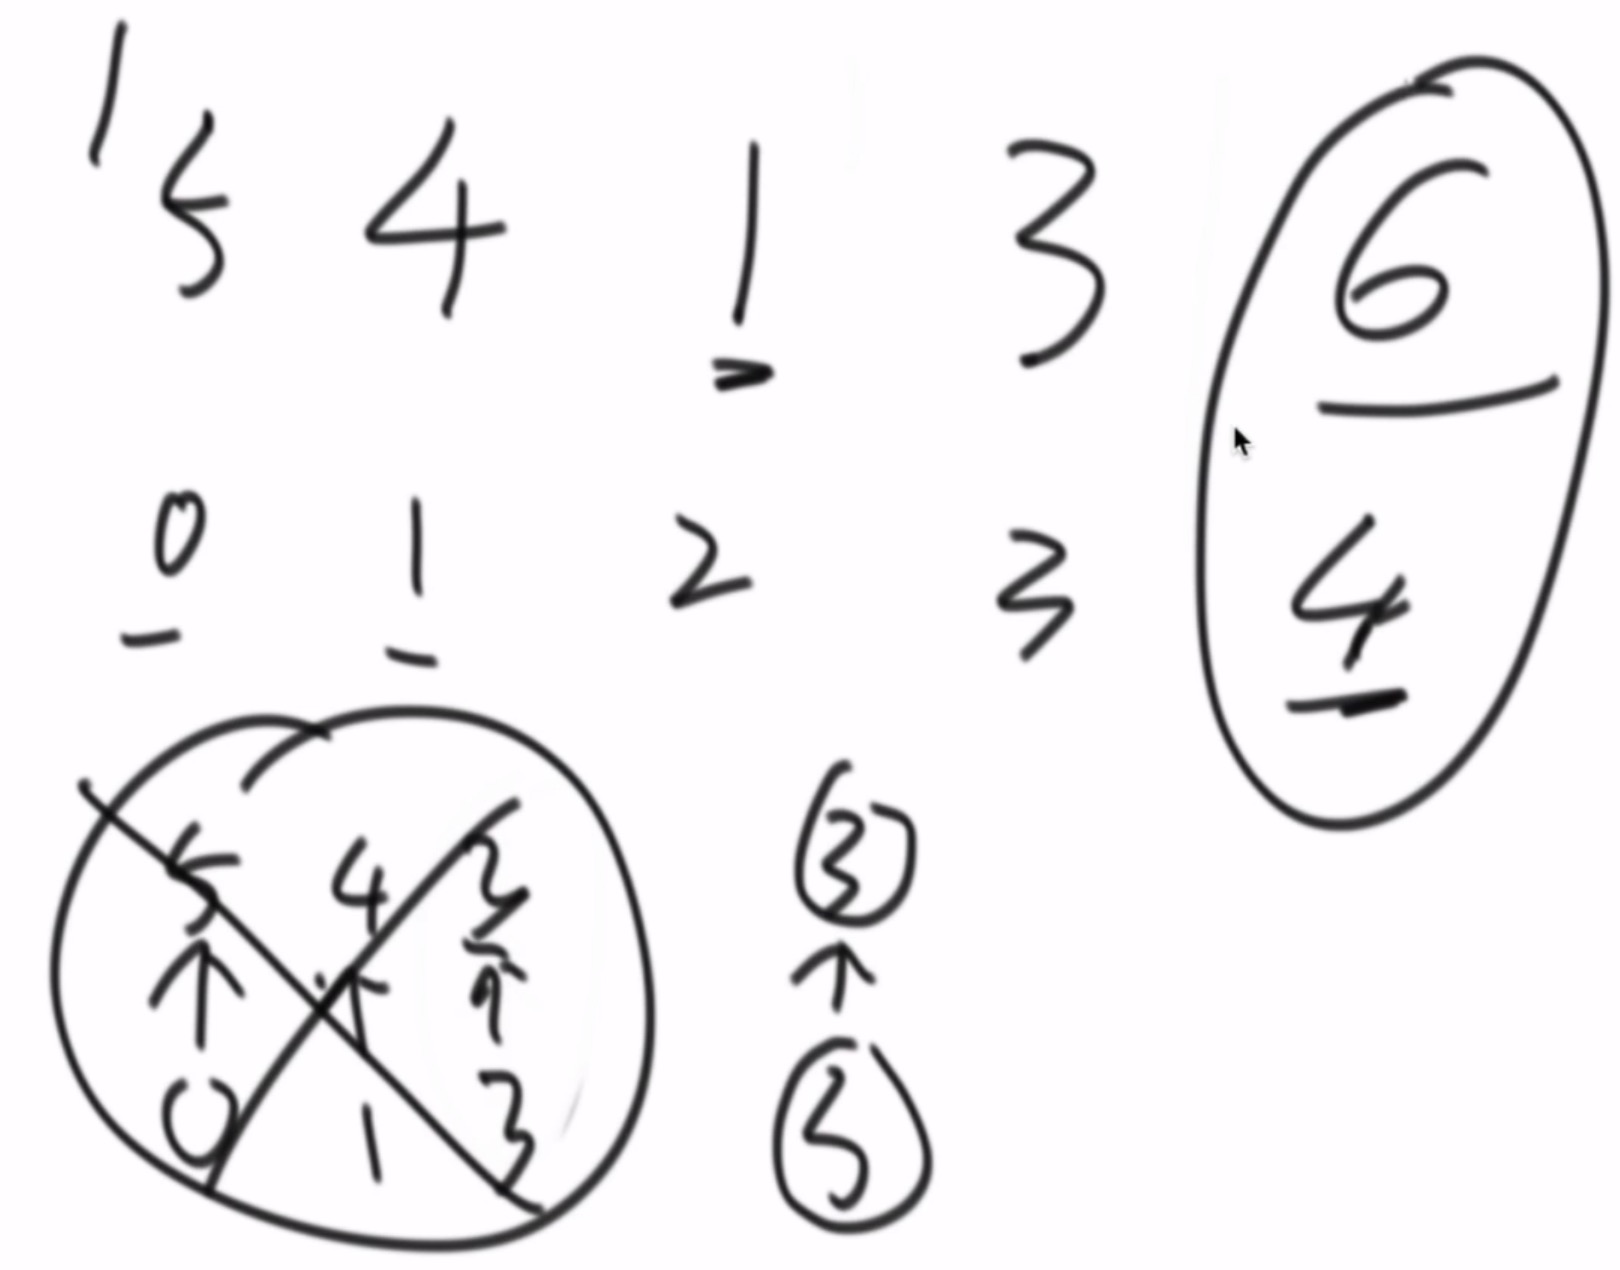 1
5 4 1 3 6
0 1 2 3 4
5 4 3
0 1 3
3
5